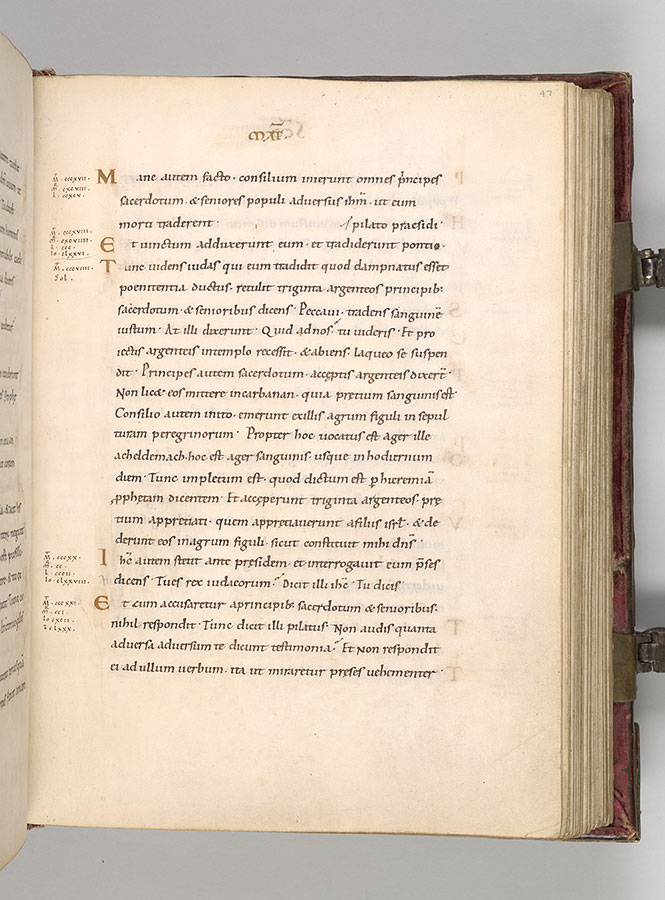 47
MAT̄
M̄. cccxvii.
M̄. cxcviii.
L. ccxcv.
Mane autem facto · consilium inierunt omnes p̄ncipes
sacerdotum · & seniores populi aduersus ih̄m · ut eum
morti traderent · / pilato praesidi ·
M̄. cccxviii.
M̄. cxcviiii.
L. ccc.
Io. clxxvi.
Et uinctum adduxerunt eum · et tradiderunt pontio ·
M̄. cccviiii.
Sol.
Tunc uidens iudas qui eum tradidit quod dampnatus esset
poenitentia ductus · retulit triginta argenteos principib;
sacerdotum · & senioribus dicens · Peccaui · tradens sanguinē
iustum · At illi dixerunt · Quid ad nos · tu uideris · Et pro
iectis argenteis intemplo recessit · & abiens · laqueo se suspen
dit · Principes autem sacerdotum · acceptis argenteis dixert̄ ·
Non lic& eos mittere incarbanan · quia pretium sanguinis est ·
Consilio autem inito · emerunt exillis agrum figuli in sepul
turam peregrinorum · Propter hoc uocatus est ager ille
acheldemach · hoc est ager sanguinis · usque in hodiernum
diem · Tunc impletum est · quod dictum est p hieremiā
pphetam dicentem · Et acceperunt triginta argenteos · pre
tium appretiati · quem appretiauerunt afiliis isrl̄ · & de
derunt eos inagrum figuli · sicut constituit mihi dn̄s ·
M̄. cccxx.
M̄. cc.
L. cccii.
Io. clxxviii.
Ih̄c autem stetit ante presidem · et interrogauit eum p̄ses
dicens · Tu es rex iudaeorum · Dicit illi ih̄c · Tu dicis ·
M̄. cccxxi.
M̄. cci.
Et cum accusaretur aprincipib; sacerdotum & senioribus ·
nihil respondit · Tunc dicit illi pilatus · Non audis quanta
aduersa aduersum te dicunt testimonia · Et Non respondit
ei ad ullum uerbum · ita ut miraretur preses uehementer ·